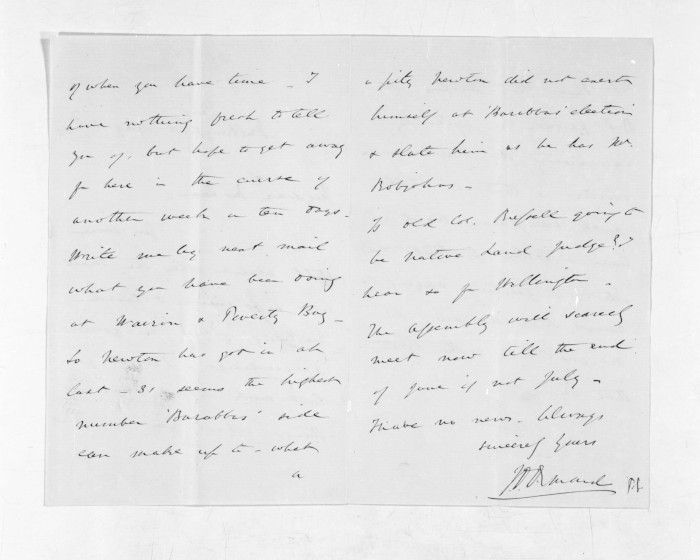 of when you have time - I
have nothing fresh to tell
you of, but hope to get away
fm here in the course of
another week or ten days.
Write me by next mail
what you have been doing
at Wairoa & Poverty Bay -
So Newton has got in at
last - 31 seems the highest
number 'Barabbas' side
can make up to - what
a
a pity Newton did not exert
himself at 'Barabbas' election
& slate him as he has Mr.
Bobjohns -
Is old Col. Russell going to
be Native Land Judge? I
hear so fm Wellington -
The Assembly will scarcely
meet now till the end
of June if not July -
I have no news. Always
sincerely yours
J D Ormond